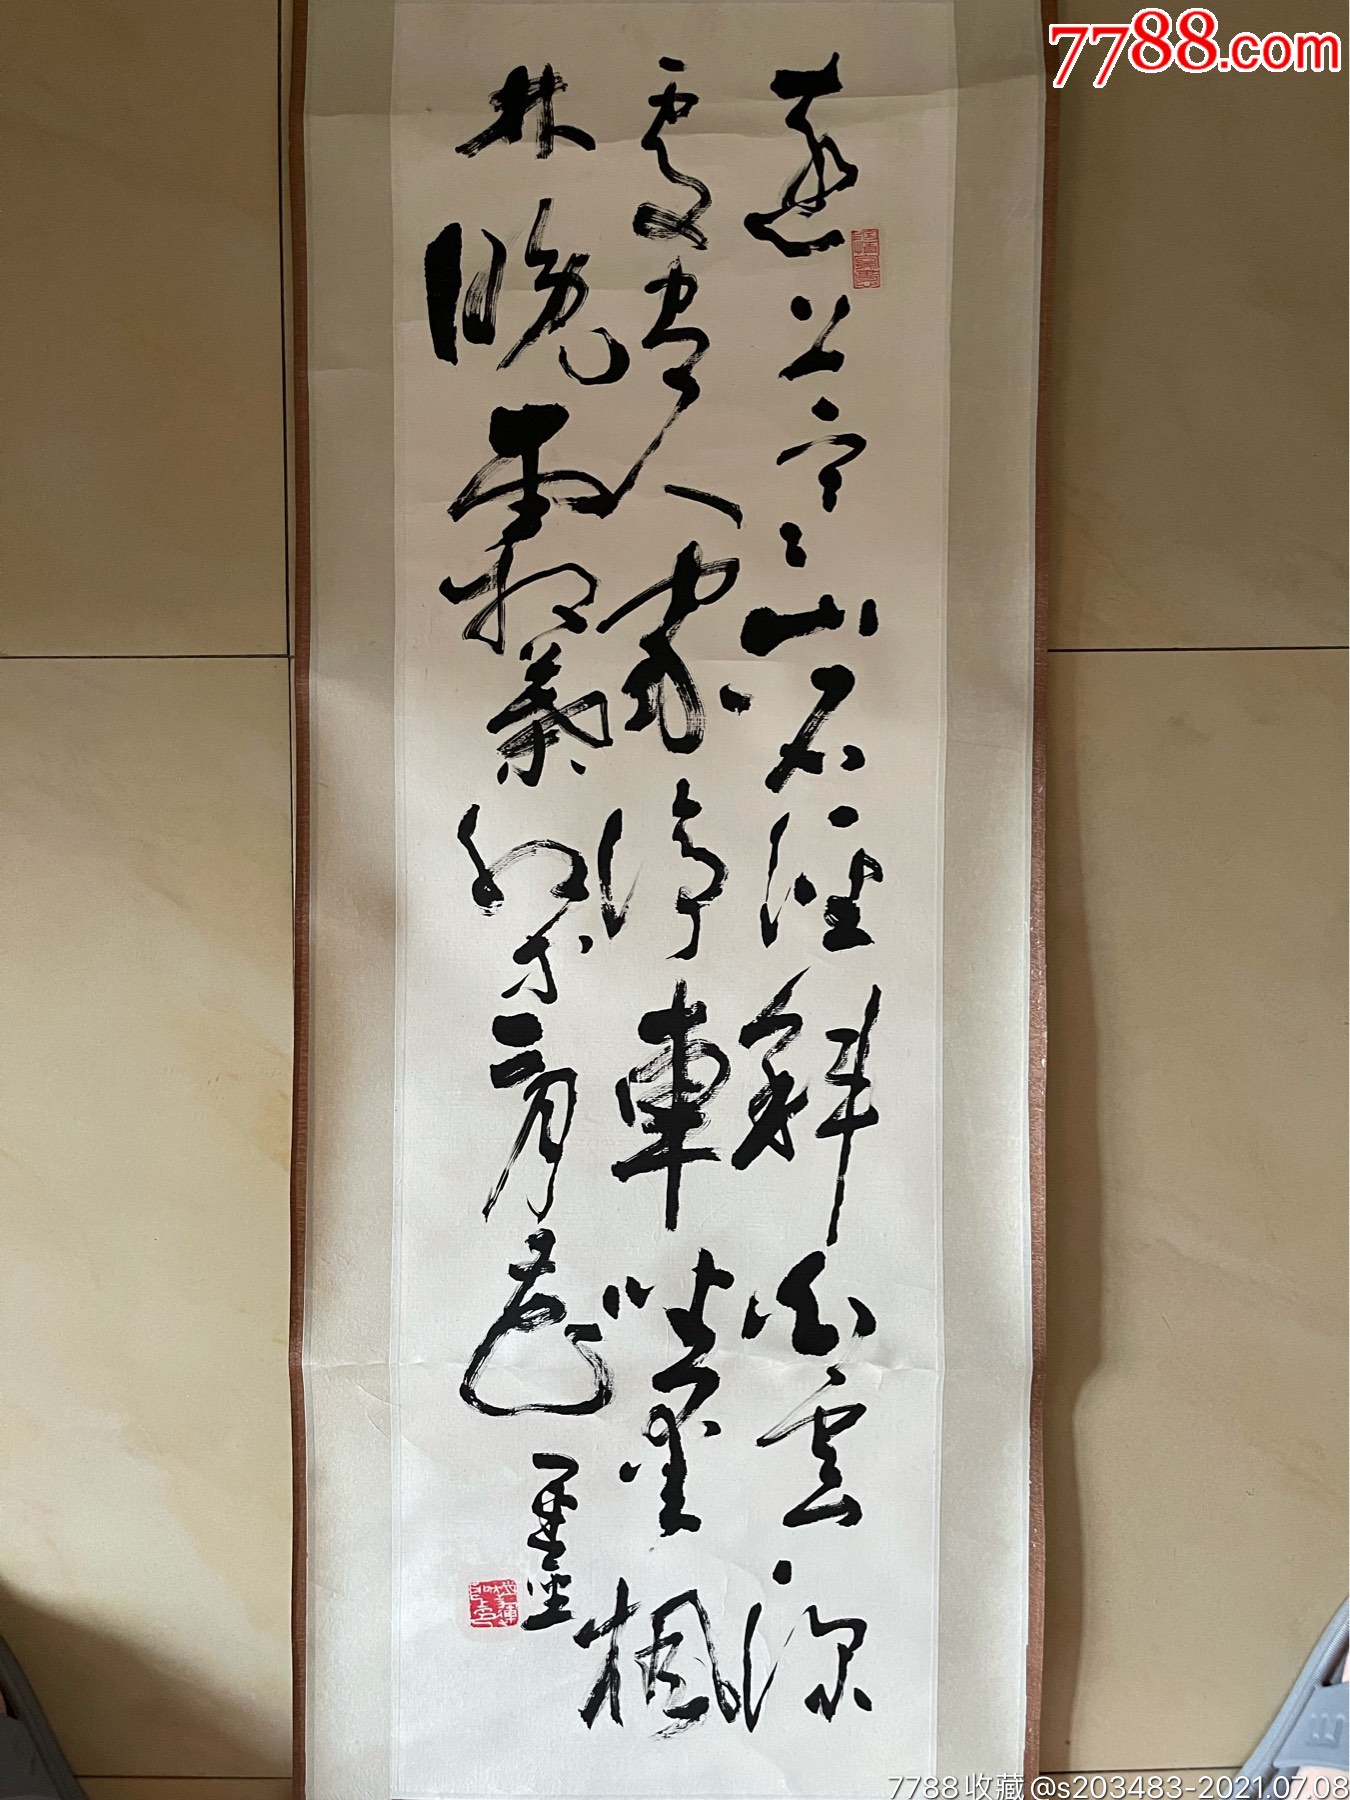 7788.com
遠上寒山石徑斜白雲深
處有人家停車坐愛楓
林晚霜葉紅於二月花
7788收藏@s203483-2021.07.08